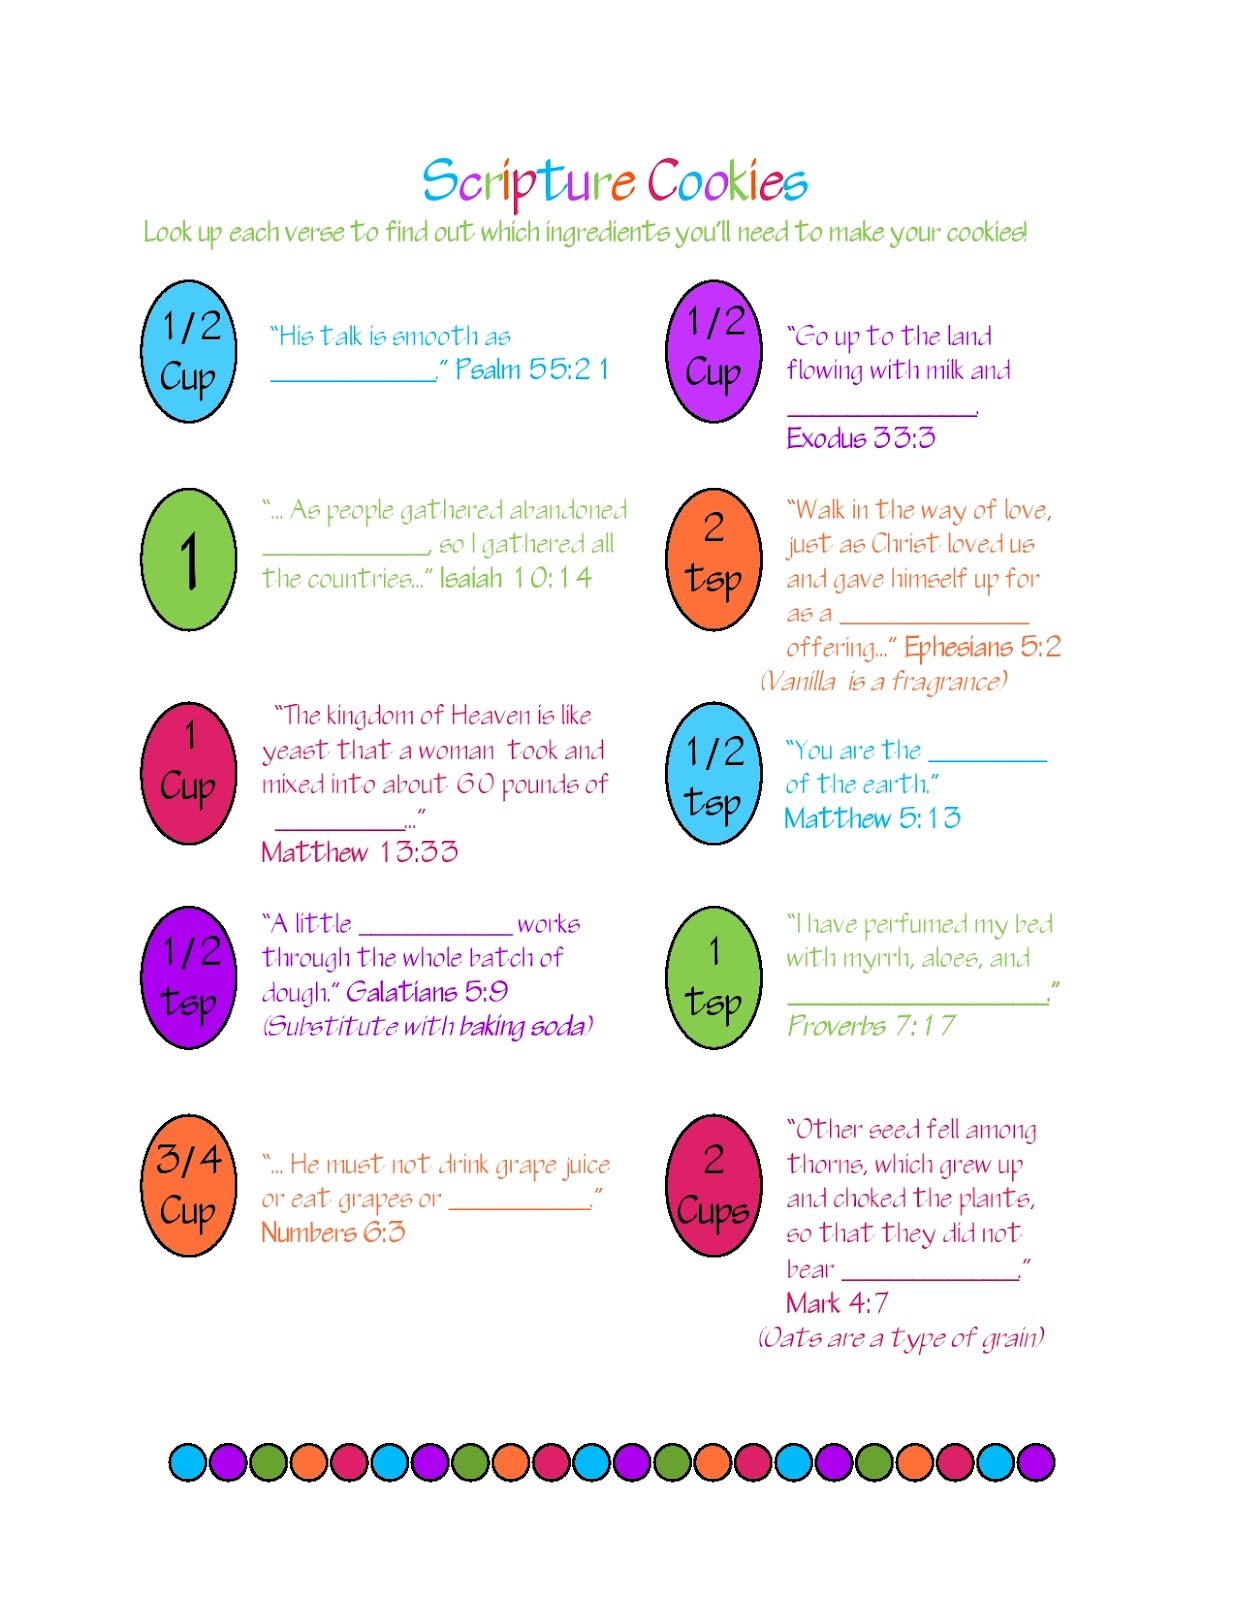 Scripture Cookies
Look up each verse to find out which ingredients you'll need to make your cookies!
1/2
Cup
"His talk is smooth as
____________." Psalm 55:21
1/2
Cup
"Go up to the land
flowing with milk and
______________.
Exodus 33:3
1
"... As people gathered abandoned
____________, so I gathered all
the countries..." Isaiah 10:14
2
tsp
"Walk in the way of love,
just as Christ loved us
and gave himself up for
as a ______________
offering..." Ephesians 5:2
(Vanilla is a fragrance)
1
Cup
"The kingdom of Heaven is like
yeast that a woman took and
mixed into about 60 pounds of
__________..."
Matthew 13:33
1/2
tsp
"You are the _________
of the earth."
Matthew 5:13
1/2
tsp
"A little ___________ works
through the whole batch of
dough." Galatians 5:9
(Substitute with baking soda)
1
tsp
"I have perfumed my bed
with myrrh, aloes, and
___________________."
Proverbs 7:17
3/4
Cup
"... He must not drink grape juice
or eat grapes or __________."
Numbers 6:3
2
Cups
"Other seed fell among
thorns, which grew up
and choked the plants,
so that they did not
bear _____________."
Mark 4:7
(Oats are a type of grain)